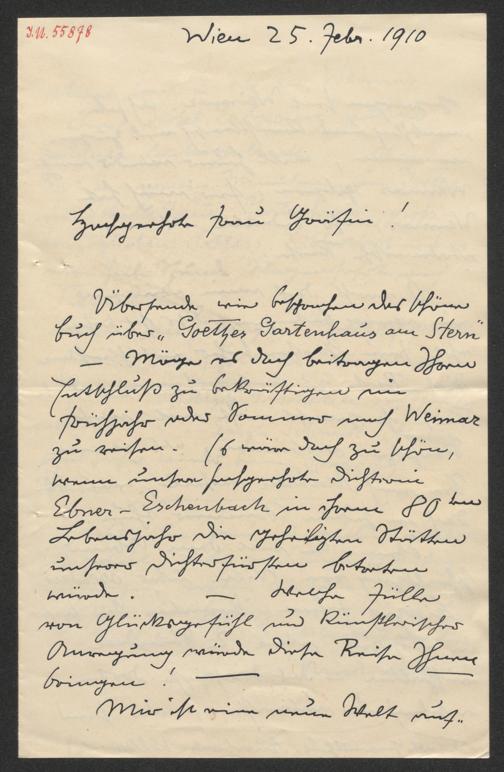 I.N. 55878
Wien 25. Febr. 1910
Hochgeehrte Frau Gräfin!
Übersende wie besprochen das schöne
Buch über „Goethes Gartenhaus am Stern"
— Möge es doch beitragen Ihren
Entschluß zu bekräftigen im
Frühjahr oder Sommer nach Weimar
zu reisen. Es wäre doch zu schön,
wenn unsere hochgeehrte Dichterin
Ebner-Eschenbach in ihrem 80ten
Lebensjahr die geheiligten Stätten
unserer Dichterfürsten betreten
würde. — Welche Fülle
von Glücksgefühl und künstlerischer
Anregung würde diese Reise Ihnen
bringen! —
Mir ist eine neue Welt auf-